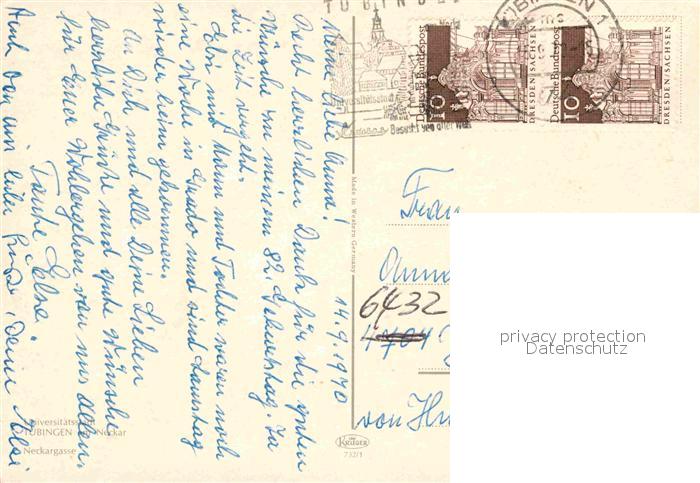 14.9.1970
Meine liebe Anna!
Recht herzlichen Dank für die guten
Wünsche zu meinem 82. Geburtstag. Ja
die Zeit vergeht.
Elsi mit Mann und Tochter waren noch
eine Woche in und sind Samstag
wieder heim gekommen.
An Dich und alle Deine Lieben
herzliche Grüsse und gute Wünsche
für Euer Wohlergehen von uns allen.
Tante Luise.
Auch von mir liebe Grüße, Deine Elsi
Universitätsstadt
TÜBINGEN am Neckar
Neckargasse
Made in Western Germany
KRÜGER
732/1
TÜBINGEN
TÜBINGEN 1
Universitätsstadt
Deutsche Bundespost
10
DRESDEN/SACHSEN
Deutsche Bundespost
10
DRESDEN/SACHSEN
Frau
6432
von
privacy protection
Datenschutz